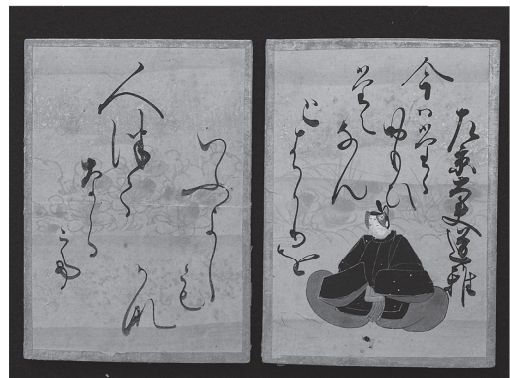 左京大夫道雅
今ハ堂ゝ
おもひ
堂えなん
とはかりを
人傳て
ならて
いふよしも
かな